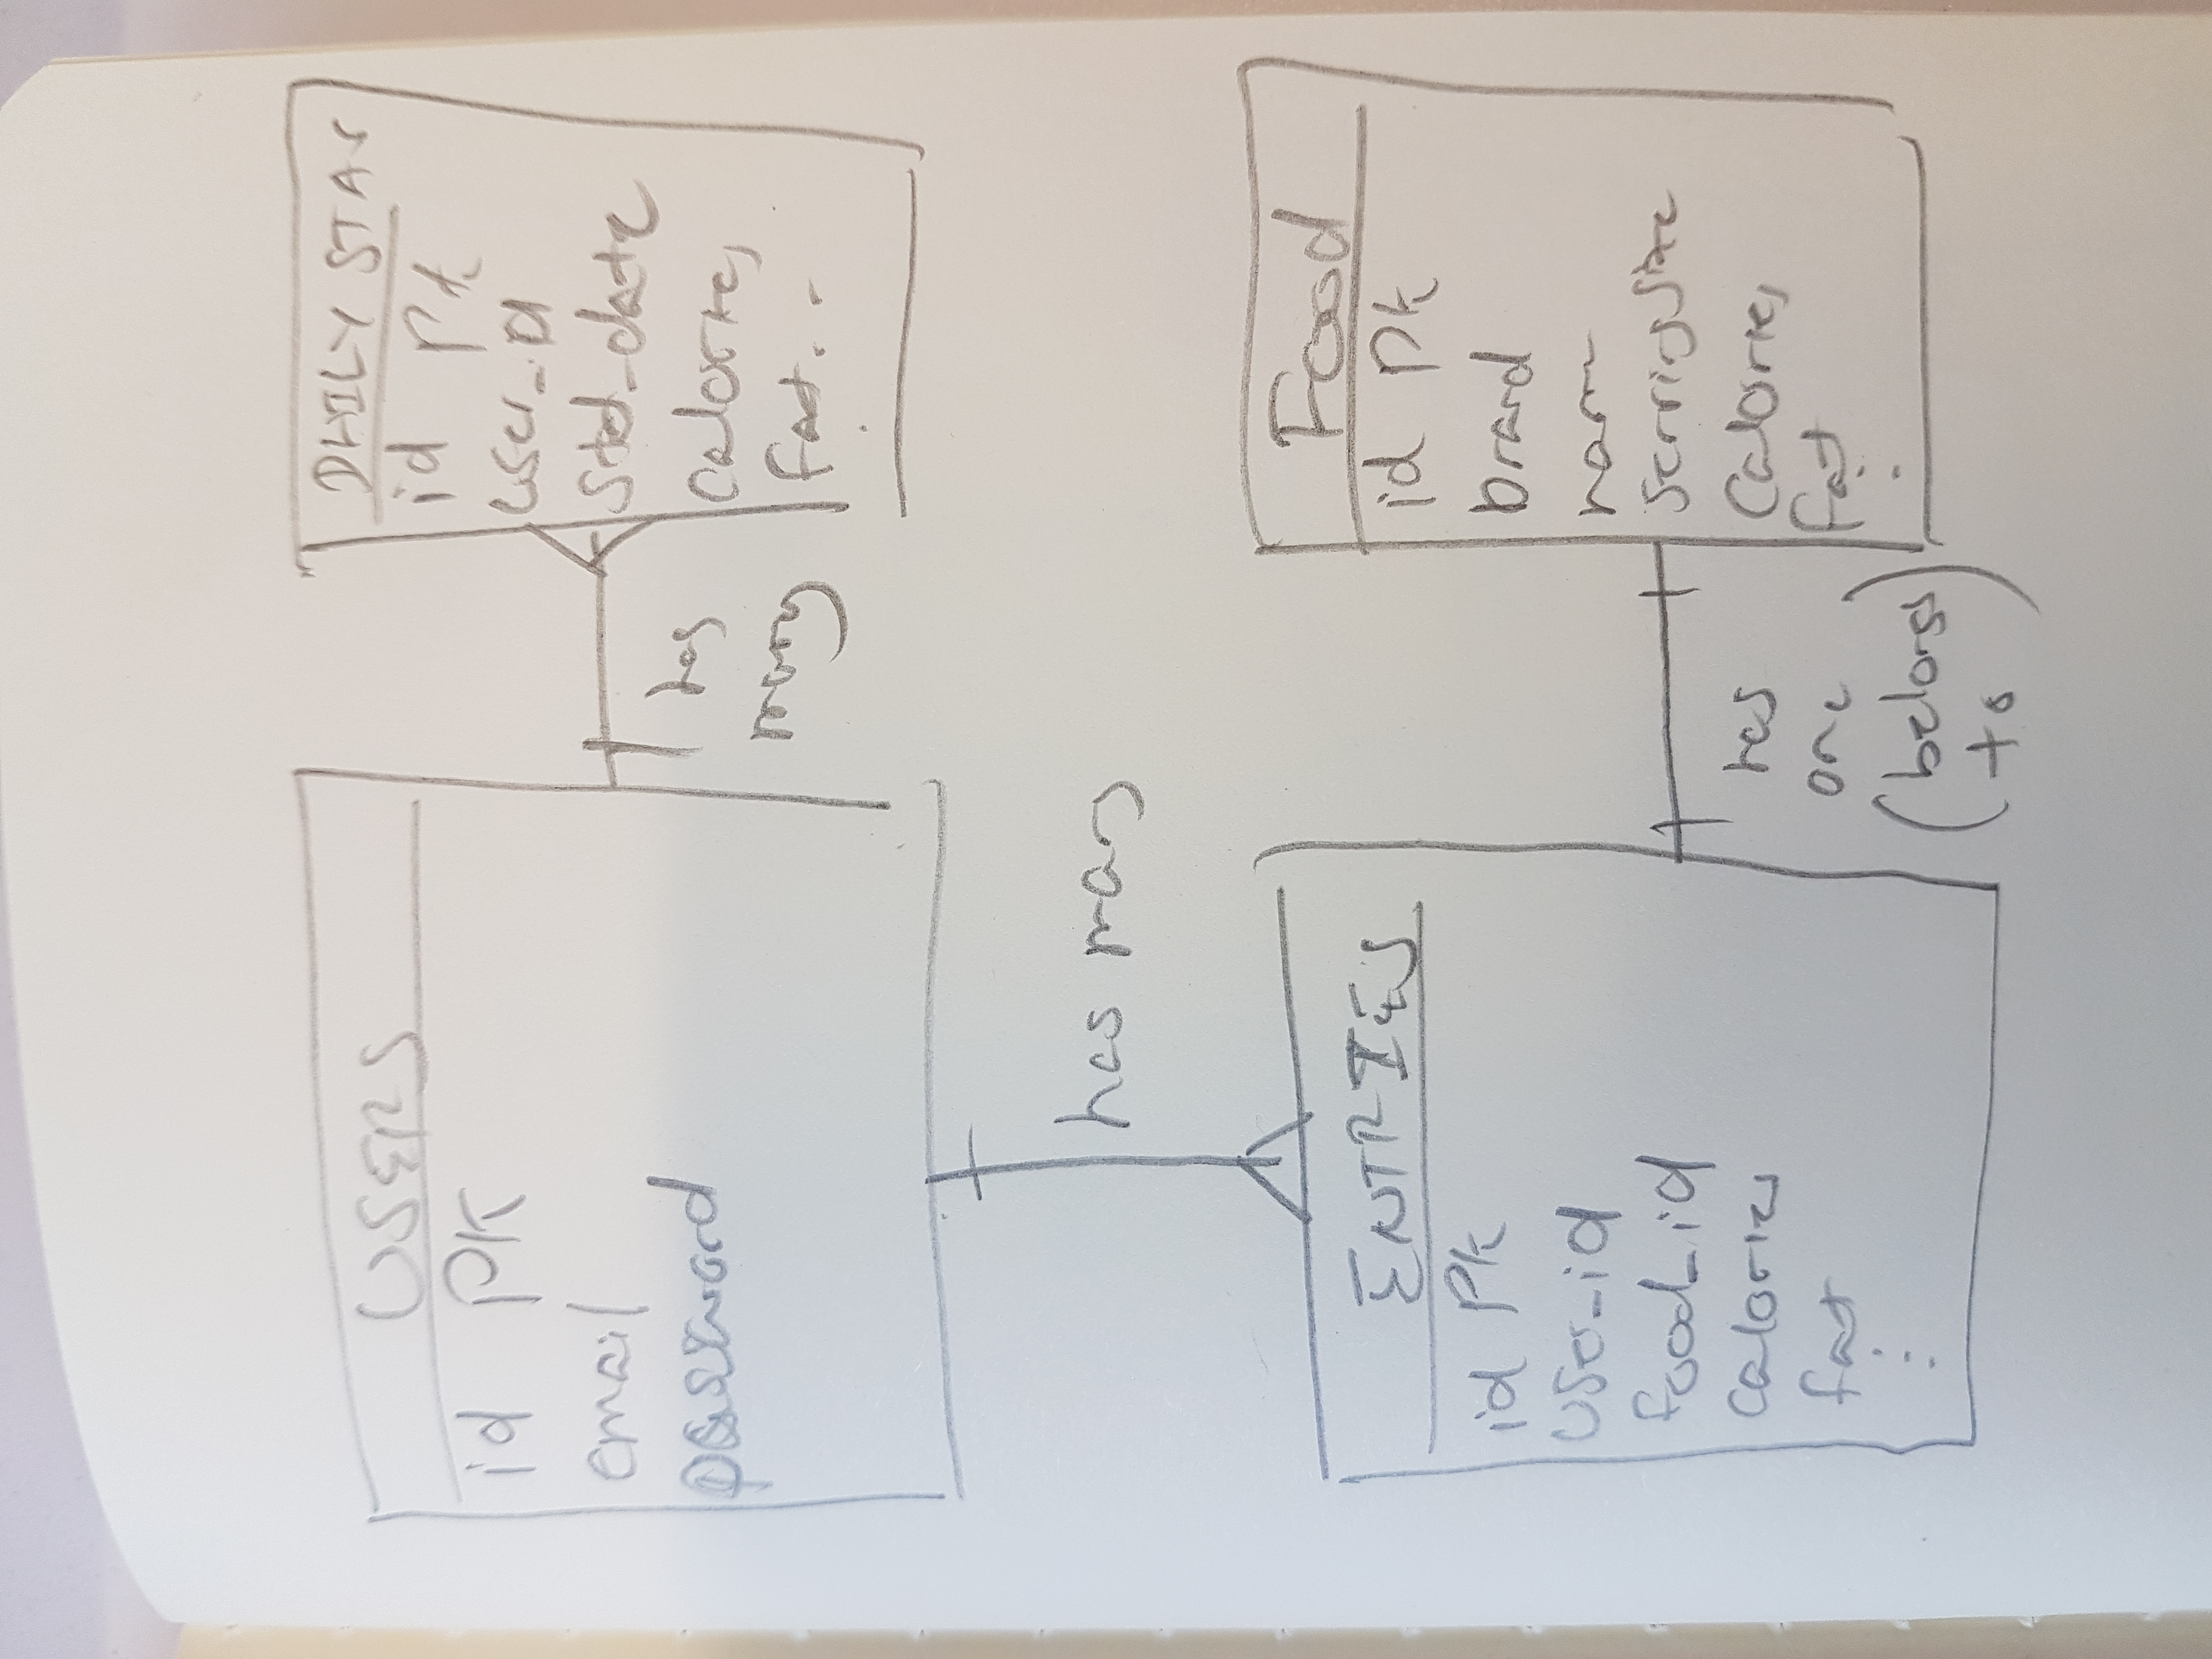 USERS
id PK
email
password
DAILY STAS
id PK
user_id
calories
fat..
has
many
has many
ENTRIES
id PK
user_id
food_id
calories
fat
has
one
(belongs
to)
Food
id PK
brand
name
serving size
Calories
fat